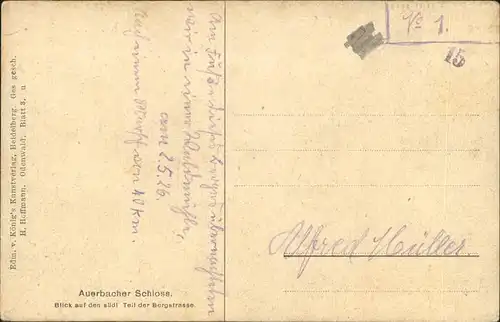 Edm. v. König's Kunstverlag, Heidelberg. Ges gesch.
H. Hoffmann. Odenwald. Blatt 3, u
Auerbacher Schloss.
Blick auf den südl Teil der Bergstrasse.
Am Fuße dieses Berges übernachteten
wir in einer
am 2.5.26.
Nach einem Marsch von 40 km.
No 1.
15
Alfred Müller.